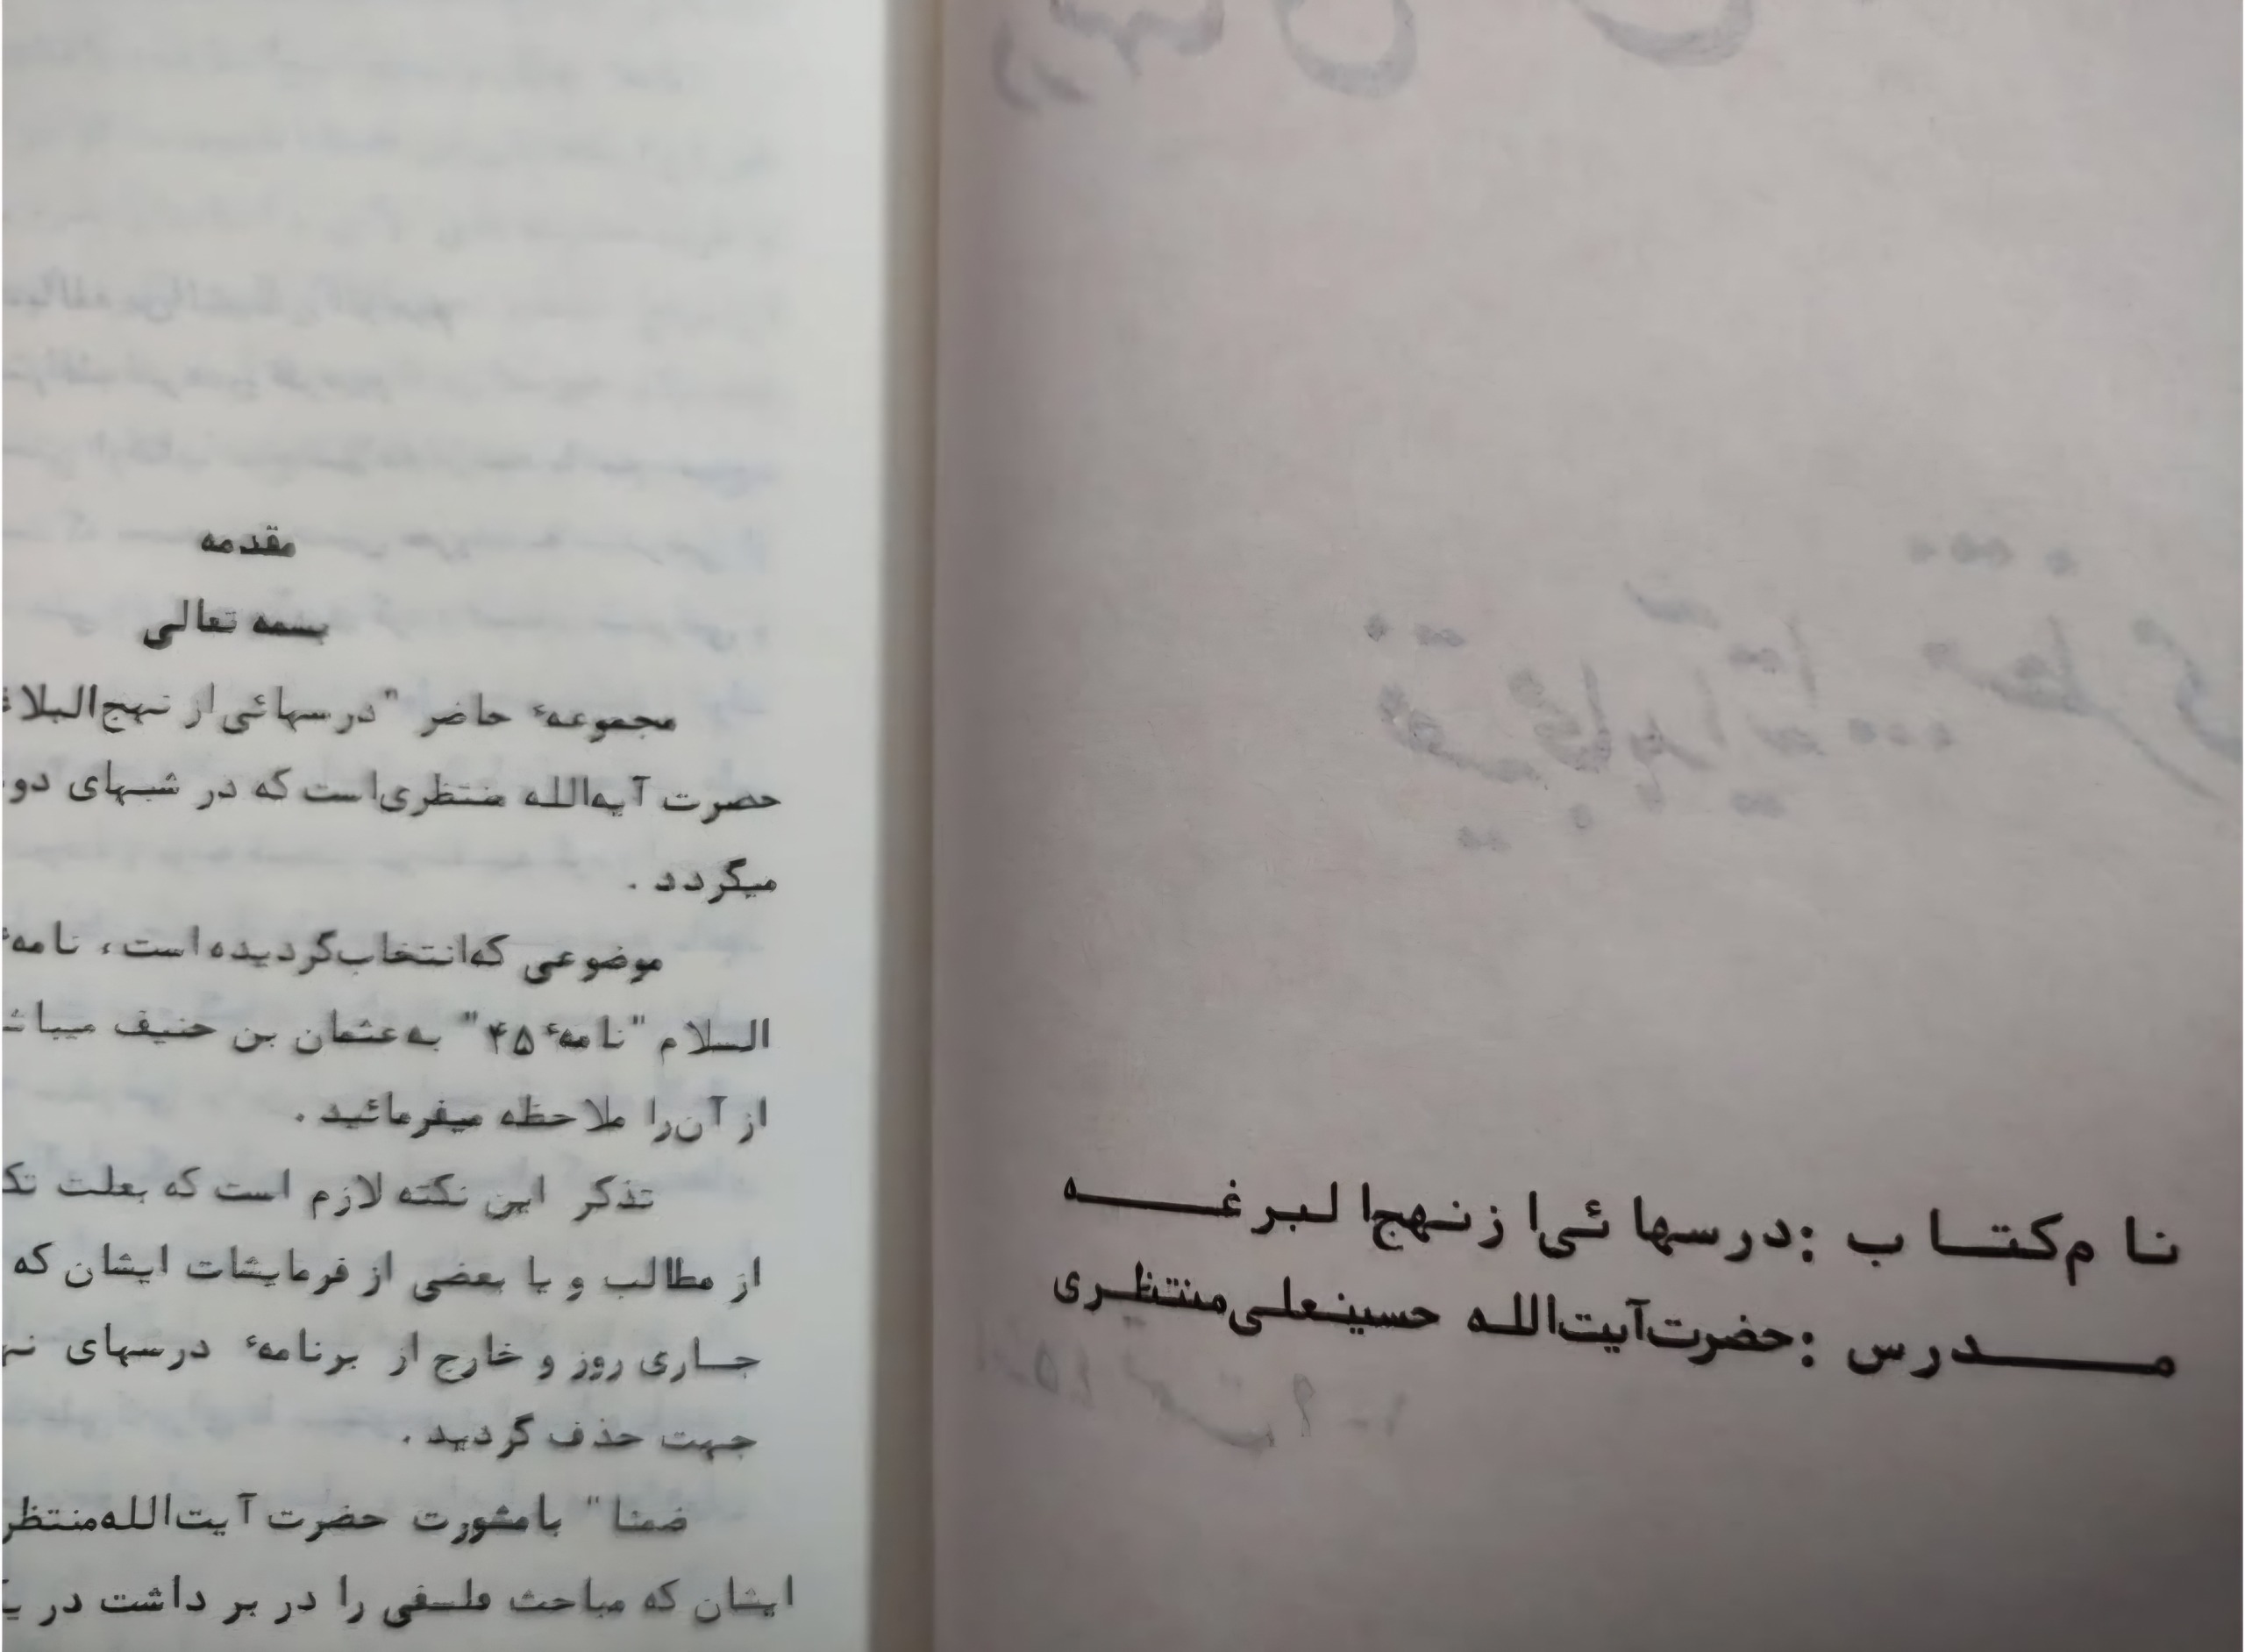 نام کتاب : درسهائی از نهج البرغه
مدرس : حضرت آیت‌الله حسینعلی منتظری
مقدمه
بسمه تعالی
مجموعهٔ حاضر "درسهائی از نهج‌البلاغ
حضرت آیه‌الله منتظری است که در شبهای دو
میگردد .
موضوعی که انتخاب گردیده است، نامهٔ
السلام "نامهٔ ۴۵" به عثمان بن حنیف میباش
از آن را ملاحظه میفرمائید .
تذکر این نکته لازم است که بعلت تک
از مطالب و یا بعضی از فرمایشات ایشان که
جاری روز و خارج از برنامهٔ درسهای نه
جهت حذف گردید .
ضمنا" با مشورت حضرت آیت‌الله منتظر
ایشان که مباحث فلسفی را در بر داشت در ی